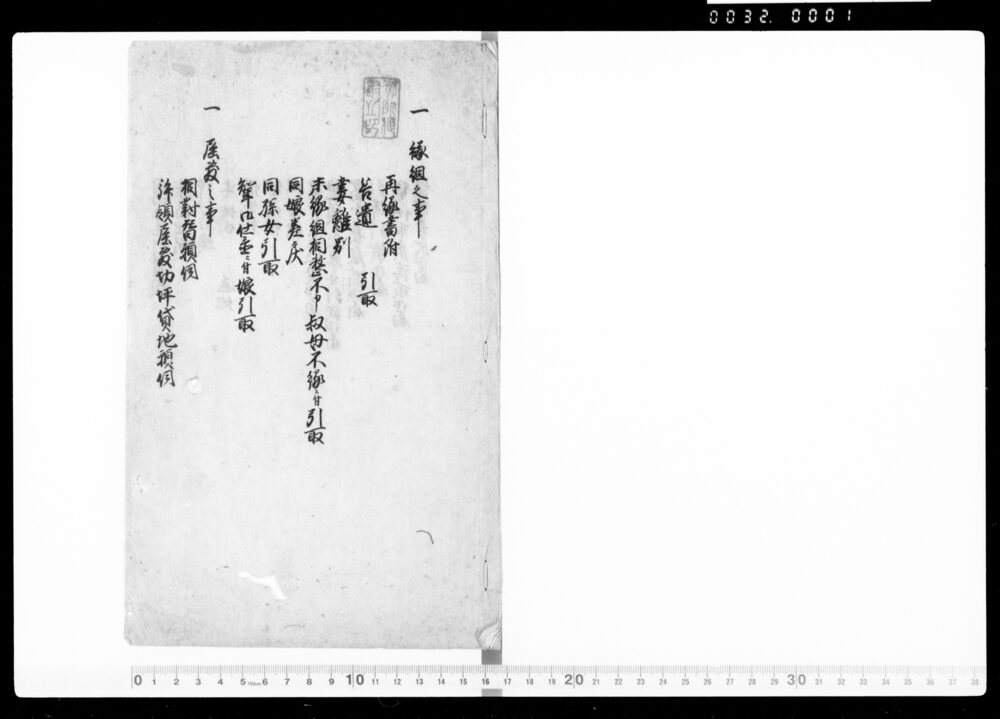 0032. 0001
一 縁組之事
再縁書附
引取
妻離別
未縁組相整不申叔母不縁ニ付引取
同娘差戻
同孫女引取
聟不仕金ニ付娘引取
一 屋敷之事
相対替願伺
拝領屋敷切坪貸地願伺
0 1 2 3 4 5 6 7 8 9 10 11 12 13 14 15 16 17 18 19 20 21 22 23 24 25 26 27 28 29 30 31 32 33 34 35 36 37 38